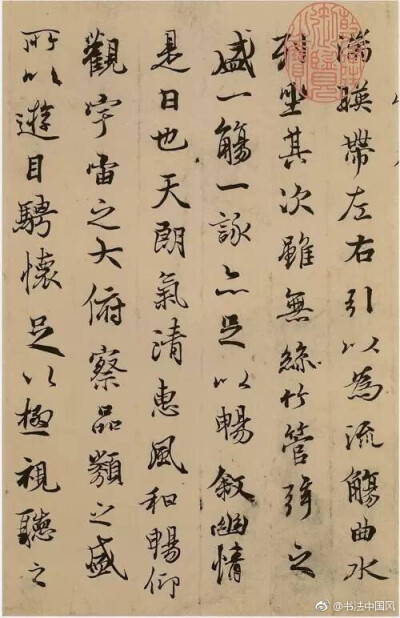 湍暎帶左右引以為流觴曲水
列坐其次雖無絲竹管弦之
盛一觴一詠亦足以暢敘幽情
是日也天朗氣清惠風和暢仰
觀宇宙之大俯察品類之盛
所以遊目騁懷足以極視聽之
@书法中国风